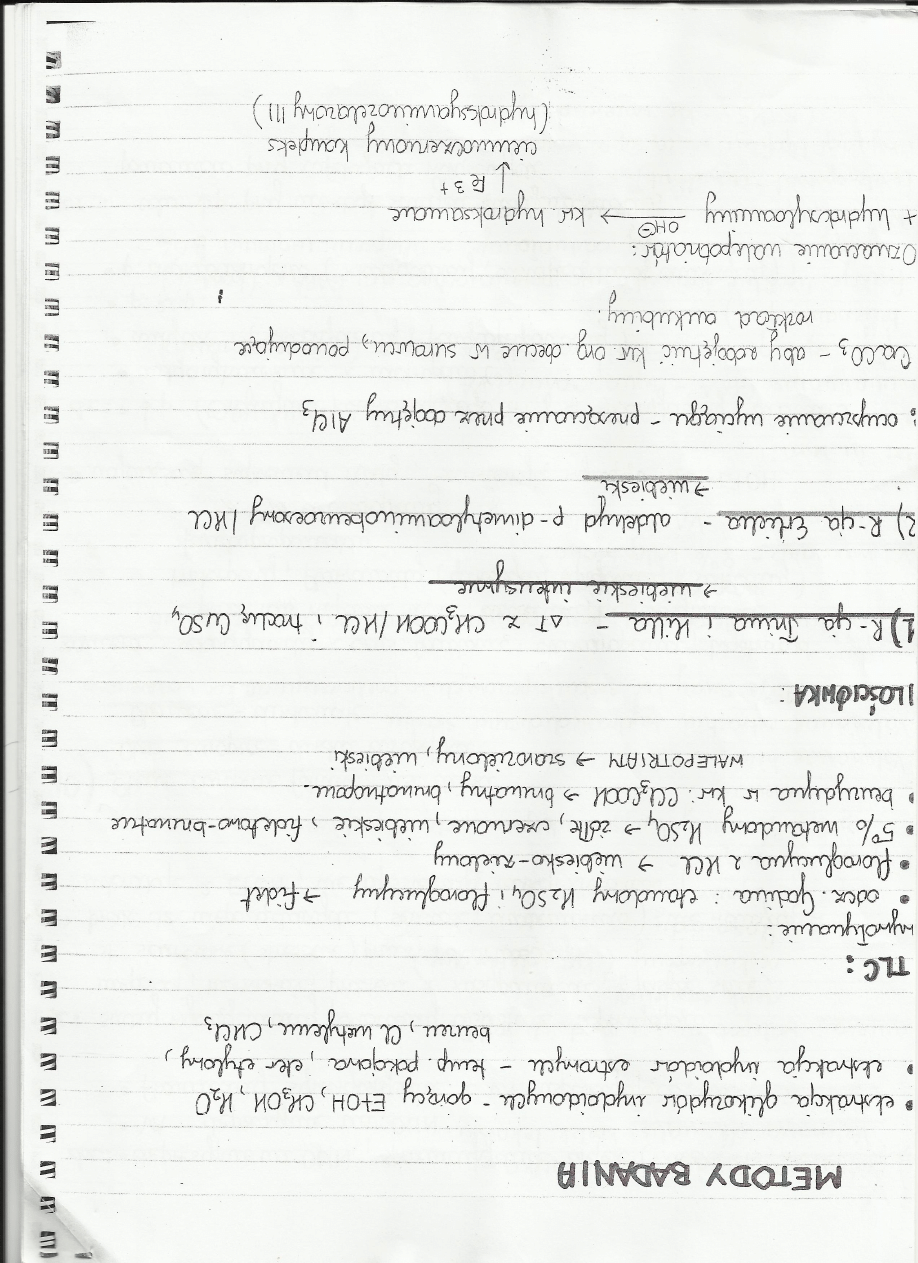 METODY BADANIA
• ekstrakcja glikozydów irydoidowych - gorący EtOH, CH₃OH, H₂O
• ekstrakcja irydoidów estrowych - temp. pokojowa, eter etylowy,
benzen, Cl metylenu, CHCl₃
TLC:
wywoływanie:
• odcz. Godina: etanolowy H₂SO₄ i floroglucyny → fiolet
• floroglucyna z HCl → niebiesko-zielony
• 5% metanolowy H₂SO₄ → żółte, czerwone, niebieskie, fioletowo-brunatne
• benzydyna w kw. CH₃COOH → brunatny, brunatnopom.
WALEPOTRIATY → szarozielony, niebieski
ILOŚCIÓWKA:
1) R-cja Trima i Hilla - ΔT z CH₃COOH/HCl i trochę CuSO₄
→ niebieskie intensywne
2) R-cja Erlicha - aldehyd p-dimetyloaminobenzoesowy/HCl
→ niebieski
: oczyszczanie wyciągu - przesączanie przez obojętny AlCl₃
CaCO₃ - aby zobojętnić kw. org. obecne w surowcu, powodujące
rozkład aukubiny.
Oznaczanie walepotriatów:
+ hydroksyloaminy OH⊖ → kw hydroksamowe
↓ Fe 3+
ciemnoczerwony kompleks
(hydroksyaminożelazowy III)